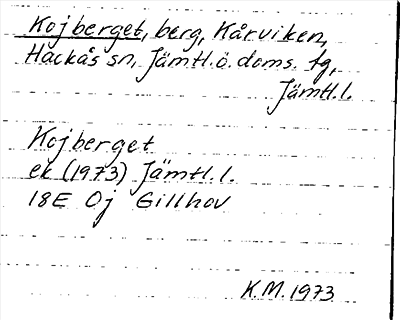 Kojberget, berg, Kårviken,
Hackås sn, Jämtl.ö.doms. tg,
Jämtl.l.
Kojberget
ek (1973) Jämtl.l.
18E 0j Gillhov
K.M. 1973